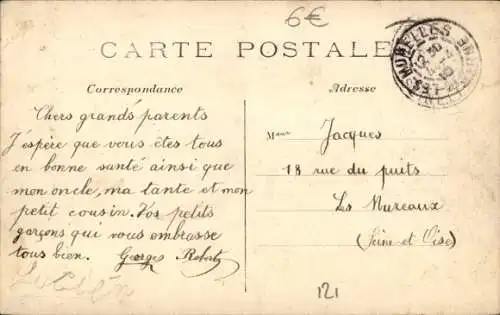 6€
CARTE POSTALE
Correspondance
Chers grands parents
J'espère que vous êtes tous
en bonne santé ainsi que
mon oncle, ma tante et mon
petit cousin. Vos petits
garçons qui vous embrasse
tous bien. Georges Robert
Adresse
Jacques
18 rue du puits
Les Mureaux
(Seine et Oise)
121